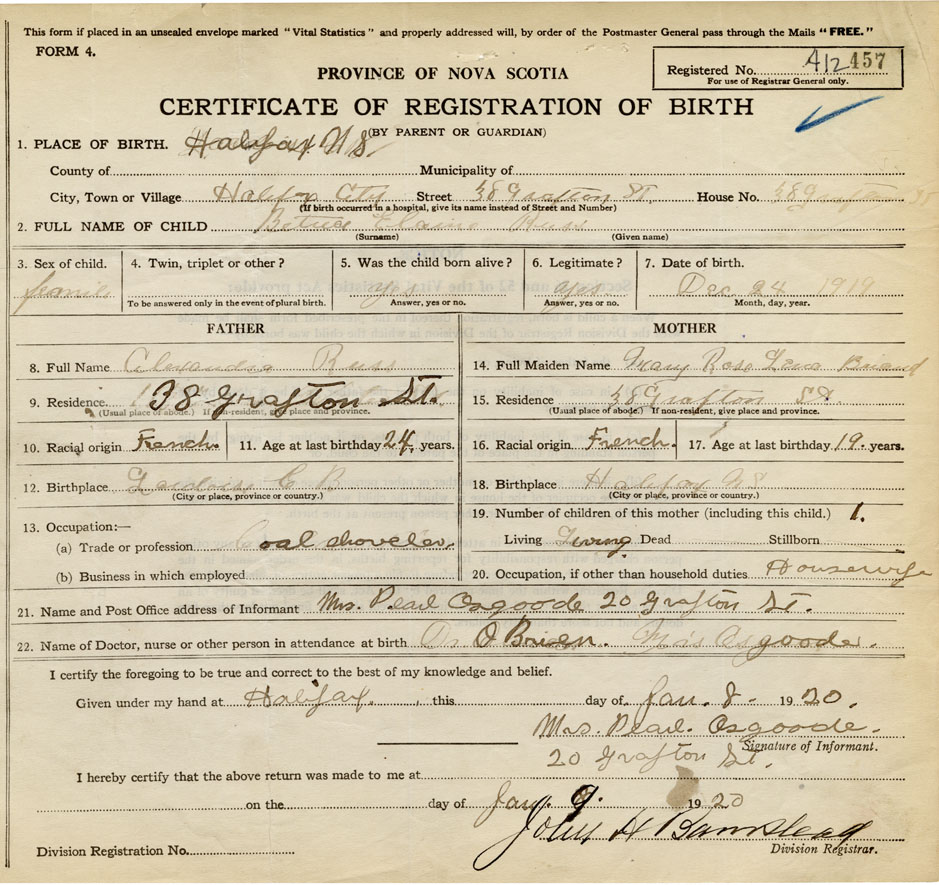 This form if placed in an unsealed envelope marked "Vital Statistics" and properly addressed will, by order of the Postmaster General pass through the Mails "FREE."
FORM 4.
PROVINCE OF NOVA SCOTIA
Registered No. 412457
For use of Registrar General only.
CERTIFICATE OF REGISTRATION OF BIRTH
(BY PARENT OR GUARDIAN)
1. PLACE OF BIRTH. Halifax N S
County of Municipality of
City, Town or Village Halifax City Street 38 Grafton St. House No. 38 Grafton St
(If birth occurred in a hospital, give its name instead of Street and Number)
2. FULL NAME OF CHILD Elaine Russ
(Surname) (Given name)
3. Sex of child. 4. Twin, triplet or other? 5. Was the child born alive? 6. Legitimate? 7. Date of birth.
yes Dec 24 1919
To be answered only in the event of plural birth. Answer, yes or no. Answer, yes or no. Month, day, year.
FATHER MOTHER
8. Full Name Russ 14. Full Maiden Name Mary Rose
9. Residence 38 Grafton St. 15. Residence 38 Grafton St
(Usual place of abode.) If non-resident, give place and province. (Usual place of abode.) If non-resident, give place and province.
10. Racial origin French. 11. Age at last birthday 24 years. 16. Racial origin French. 17. Age at last birthday 19. years.
12. Birthplace C B 18. Birthplace Halifax N S
(City or place, province or country.) (City or place, province or country.)
13. Occupation:— 19. Number of children of this mother (including this child.) 1.
(a) Trade or profession Coal shoveler. Living Living Dead Stillborn
(b) Business in which employed 20. Occupation, if other than household duties Housewife
21. Name and Post Office address of Informant Mrs. Pearl Osgoode 20 Grafton St.
22. Name of Doctor, nurse or other person in attendance at birth Dr O Brien. Mrs Osgoode.
I certify the foregoing to be true and correct to the best of my knowledge and belief.
Given under my hand at Halifax. this day of Jan. 8. 1920.
Mrs. Pearl. Osgoode.
Signature of Informant.
20 Grafton St.
I hereby certify that the above return was made to me at
on the day of Jan. 9. 1920
John H Barnstead
Division Registration No. Division Registrar.